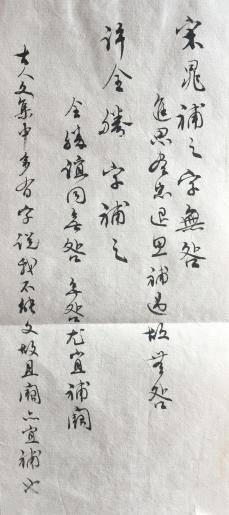 宋晁補之字無咎
進思尽忠退思補過故無咎
許全勝字補之
全勝誼同無咎無咎尤宜補闕
古人文集中多有字説我不能文故且闕亦宜補也